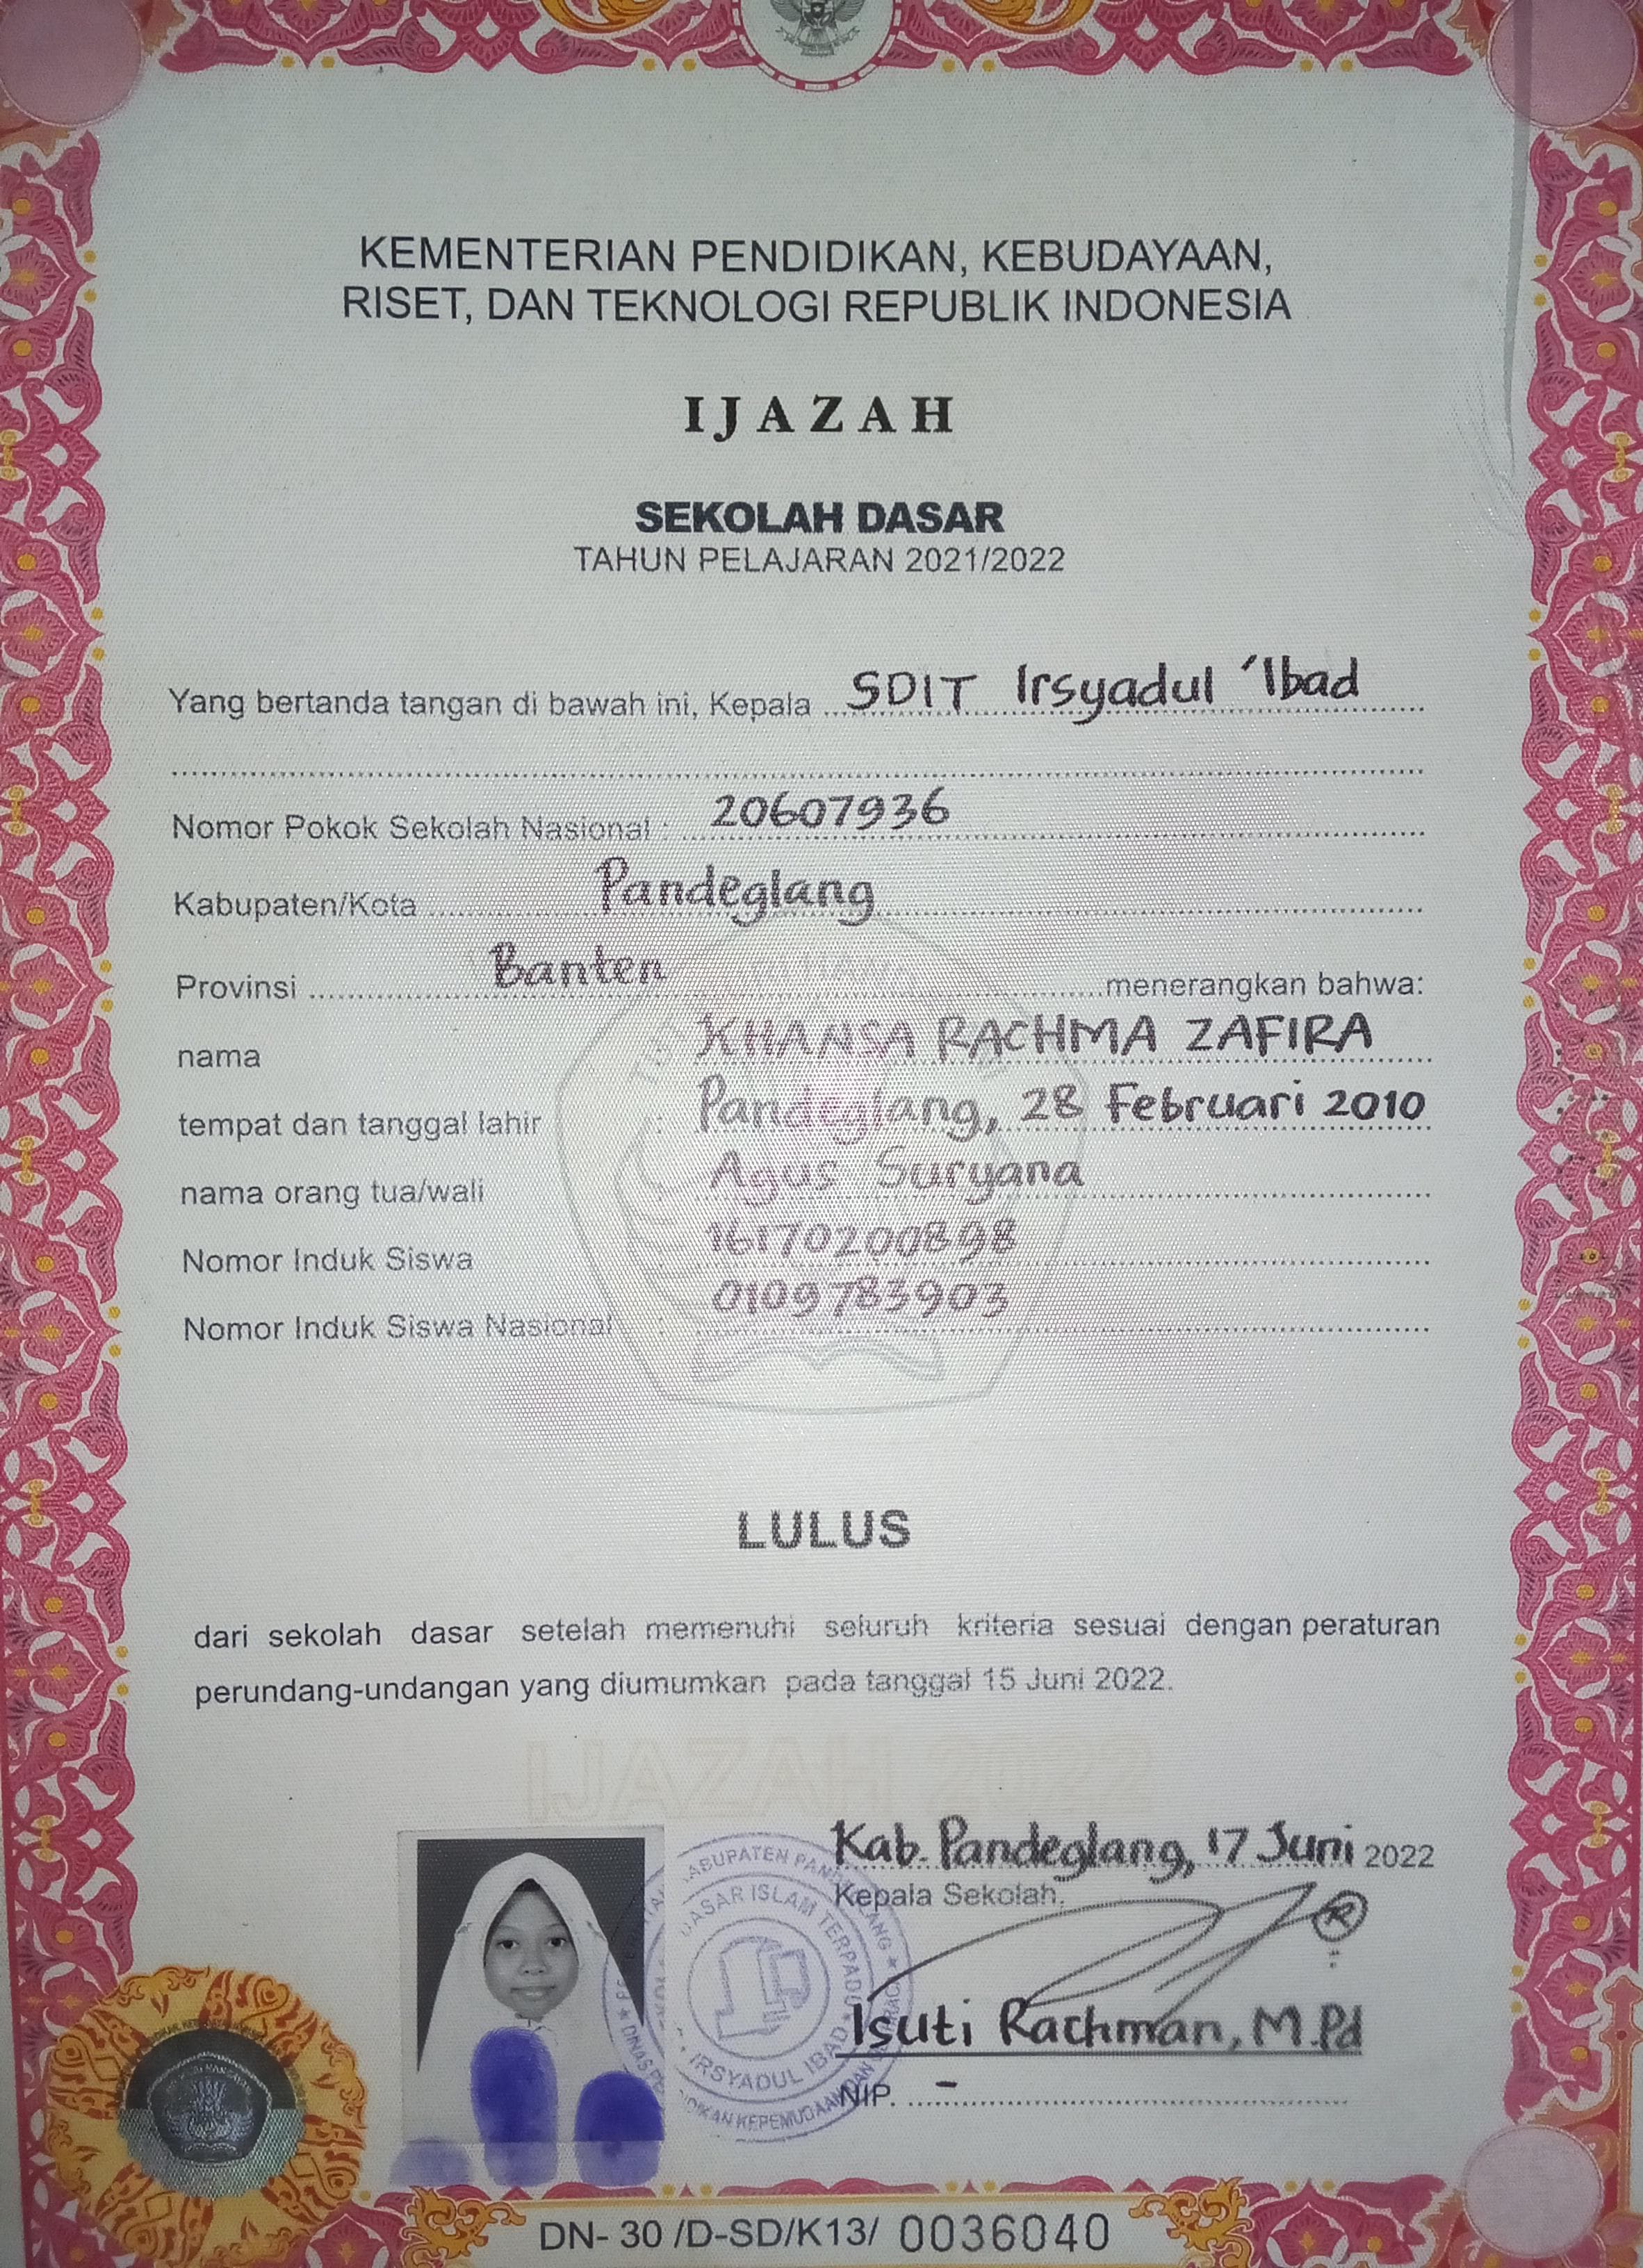 KEMENTERIAN PENDIDIKAN, KEBUDAYAAN,
RISET, DAN TEKNOLOGI REPUBLIK INDONESIA
IJAZAH
SEKOLAH DASAR
TAHUN PELAJARAN 2021/2022
Yang bertanda tangan di bawah ini, Kepala SDIT Irsyadul 'Ibad
Nomor Pokok Sekolah Nasional : 20607936
Kabupaten/Kota Pandeglang
Provinsi Banten menerangkan bahwa:
nama KHANSA RACHMA ZAFIRA
tempat dan tanggal lahir : Pandeglang, 28 Februari 2010
nama orang tua/wali : Agus Suryana
Nomor Induk Siswa : 16170200898
Nomor Induk Siswa Nasional : 0109783903
LULUS
dari sekolah dasar setelah memenuhi seluruh kriteria sesuai dengan peraturan
perundang-undangan yang diumumkan pada tanggal 15 Juni 2022.
IJAZAH 2022
Kab. Pandeglang, 17 Juni 2022
Kepala Sekolah,
Isuti Rachman, M.Pd
NIP. -
DASAR ISLAM TERPADU
IRSYADUL IBAD
DN- 30 /D-SD/K13/ 0036040